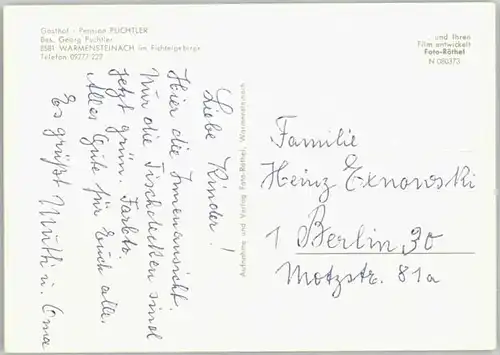 Gasthof - Pension PUCHTLER
Bes. Georg Puchtler
8581 WARMENSTEINACH im Fichtelgebirge
Telefon 09277 227
und Ihren
Film entwickelt
Foto-Röthel
N 080373
Liebe Kinder!
Hier die Innenansicht.
Nur die Tischdecken sind
jetzt grün. Farbtv.
Alles Gute für Euch alle.
Es grüßt Mutti u. Oma
Aufnahme und Verlag Foto-Röthel, Warmensteinach
Familie
Heinz Exnowski
1 Berlin 30
Motzstr. 81a